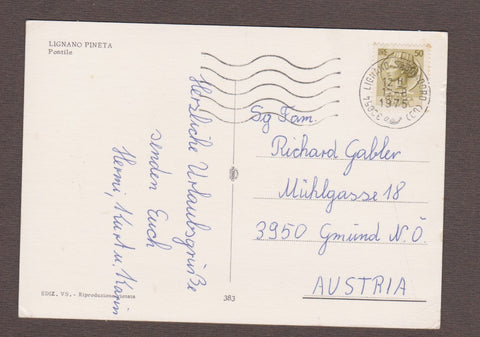 LIGNANO PINETA
Pontile
Herzliche Urlaubsgrüße
senden Euch
Hermi, Kurt u. Karin
Sg Fam.
Richard Gabler
Mühlgasse 18
3950 Gmünd N.Ö.
AUSTRIA
50
33054 LIGNANO
1975
EDIZ. VS. - Riproduzione vietata
383